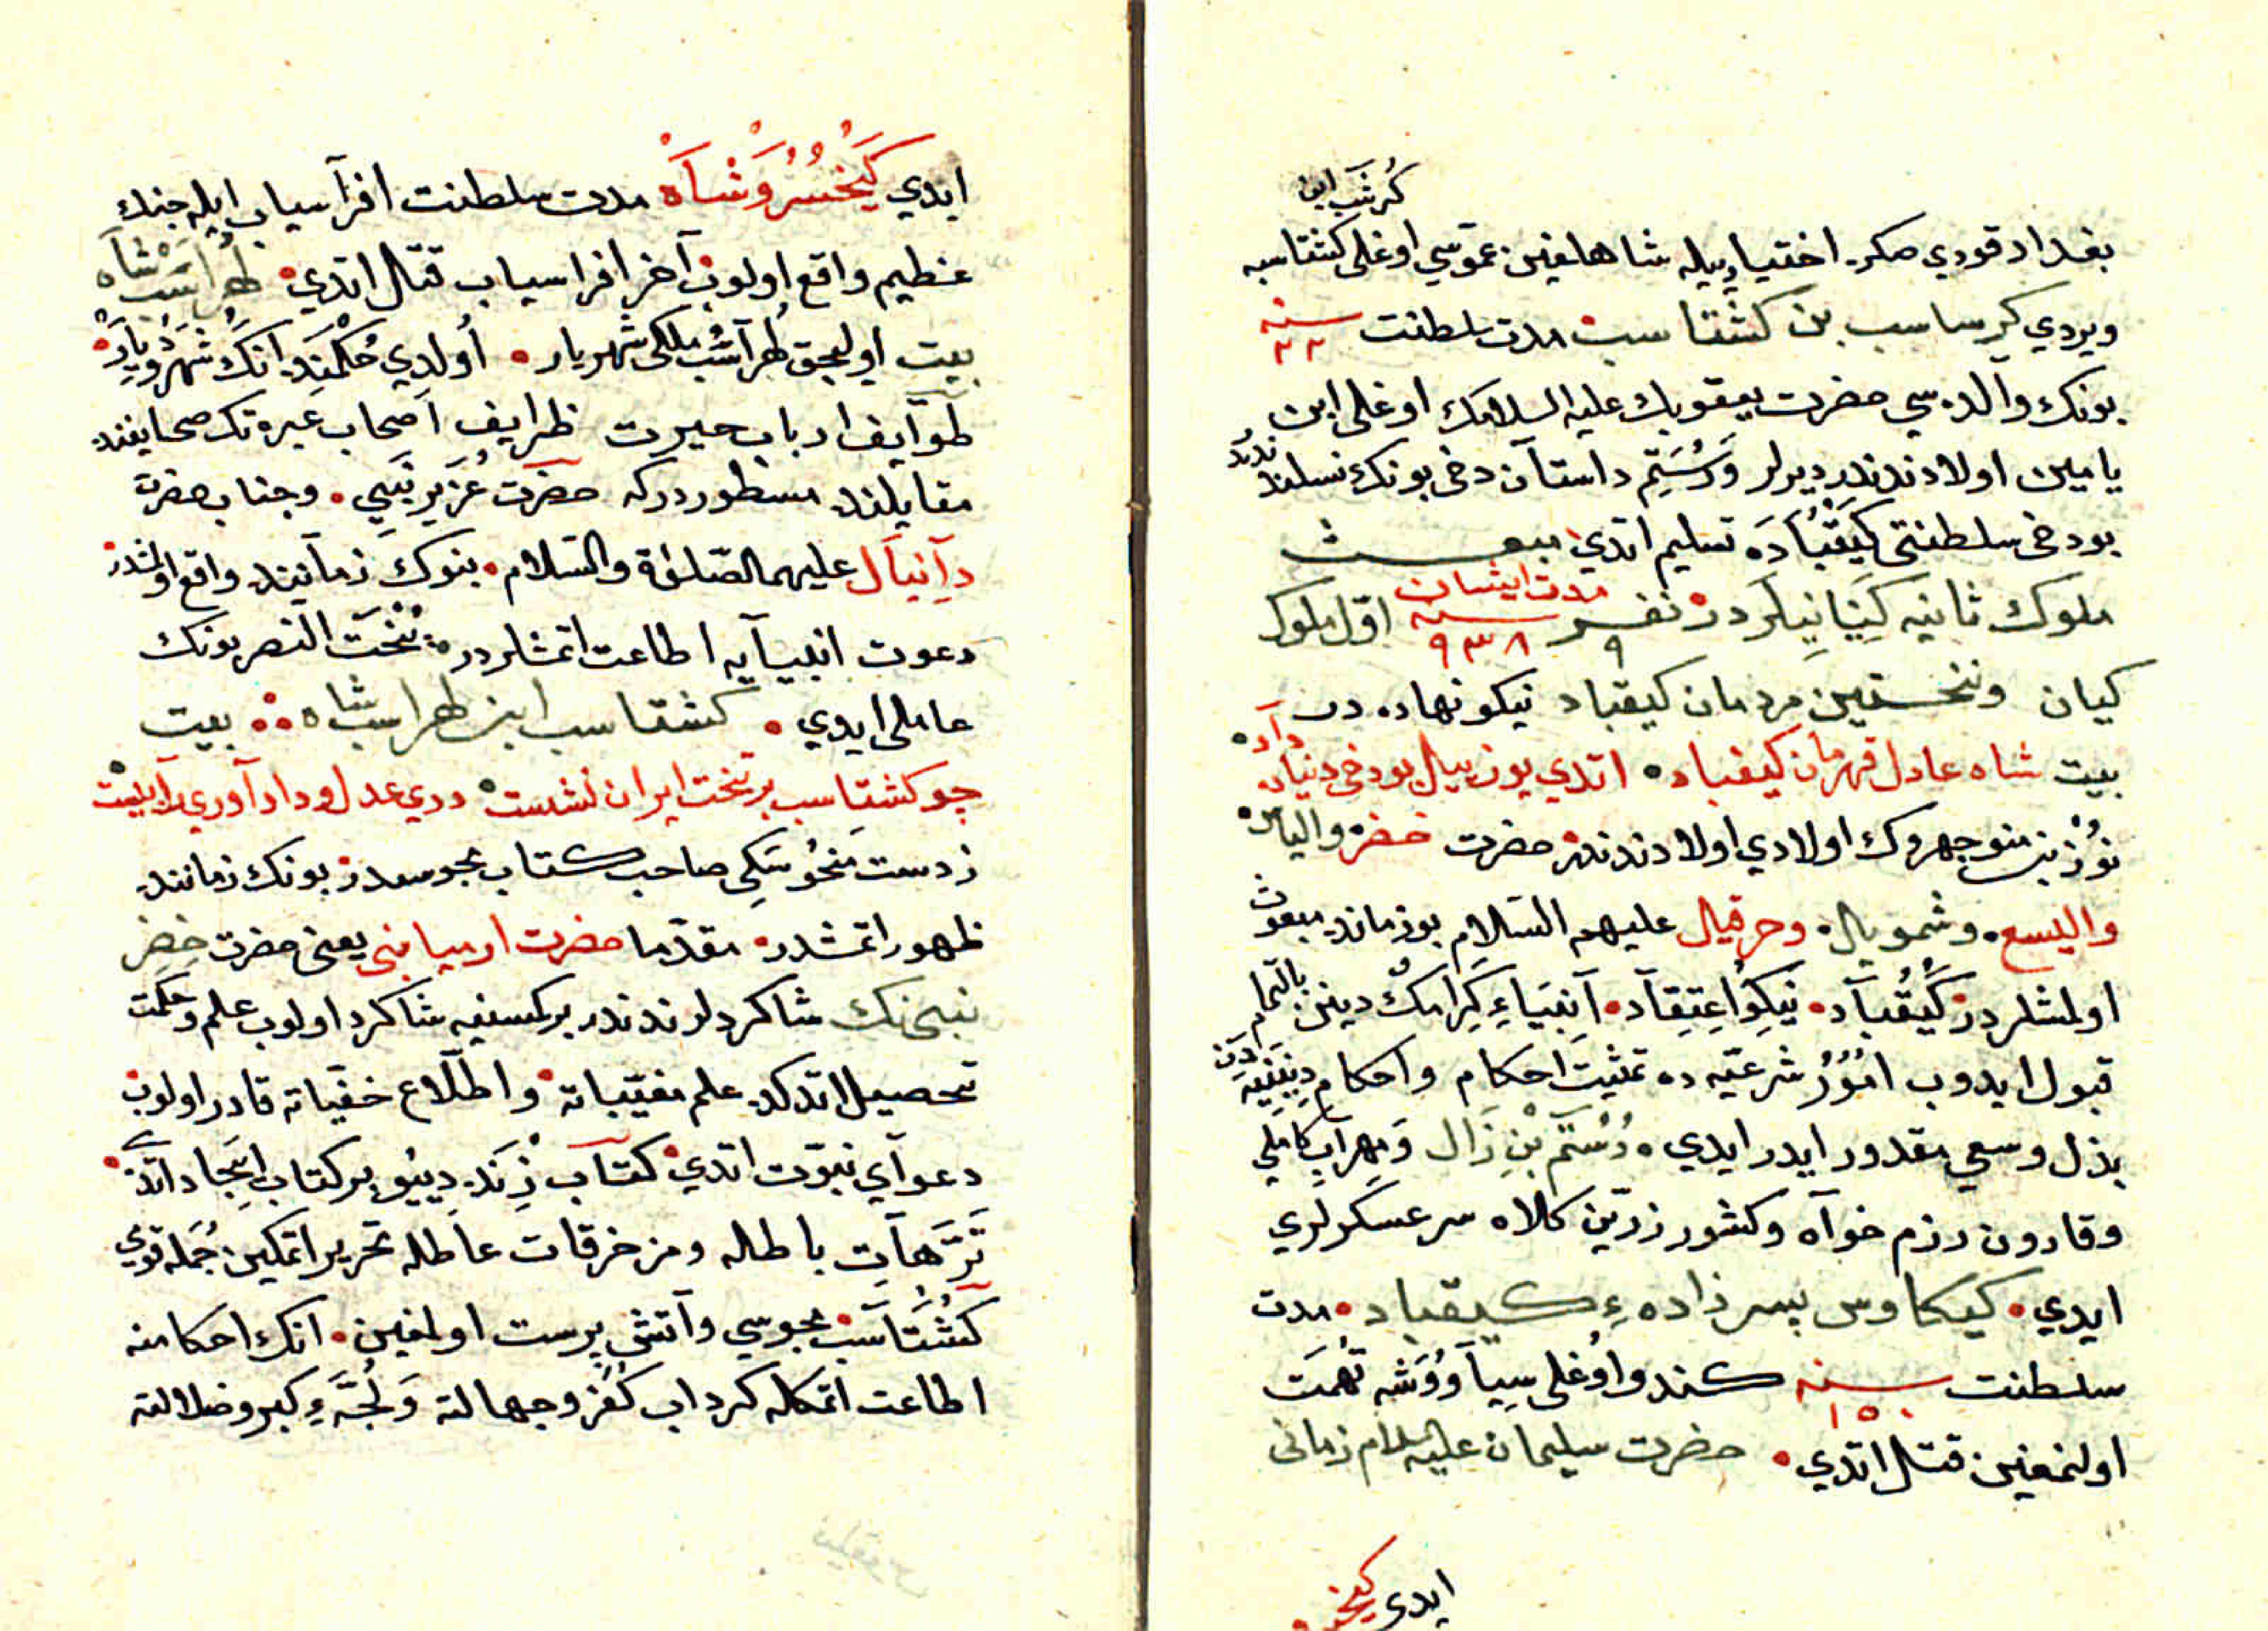 كرشب ابن
بغداد قودي صكره اختياريله شاهلغين عموسي اوغلى كشتاسبه
ويردي كرساسب بن كشتاسب مدت سلطنت سنه ٢٢
بونك والده سي حضرت يعقوبك عليه السلامك اوغلى ابن
يامين اولادندندر ديرلر ورستم داستان دخى بونك نسلندندر
بودخى سلطنتى كيقباده تسليم اتدي مبعث
ملوك ثانيه كيانيلردر نفر ٩ مدت ايشان سنه ٩٣٨ اول ملوك
كيان ونخستين مردمان كيقباد نيكونهاده در
بيت شاه عادل قهرمان كيقباد اتدي يوز ييل بودخى دنياده داد
نوذر بن منوجهروك اولادي اولادندندر حضرت خضر والياس
واليسع وشمويال وحزقيال عليهم السلام بوزمانده مبعوث
اولمشلردر كيقباد نيكو اعتقاد انبياء كرامك دينن بالتمام
قبول ايدوب امور شرعيه ده تمثيت احكام واحكام دينيه دن
بذل وسعي مقدور ايدر ايدي رستم بن زال ومهراب كاملي
وقارون رزم خواه وكشور زرين كلاه سرعسكرلري
ايدي كيكاوس پسر زاده ء كيقباد مدت
سلطنت سنه ١٥٠ كندو اوغلى سياووشه تهمت
اولنمغين قتال اتدي حضرت سليمان عليه السلام زمانى
ايدى كيخسرو
ايدي كيخسروشاه مدت سلطنت افراسياب ايله جنك
عظيم واقع اولوب آخر افراسياب قتال اتدي لهراسب شاه
بيت اوليجق لهراسب ملكى شهريار اولدي حكمنده انك شهر وديار
طوايف ارباب حيرت ظرايف اصحاب عبرتك صحايفنده
مقابلنده مسطوردركه حضرت عزير نبي وجناب حضرت
دانيال عليهما الصلوة والسلام بنوك زماننده واقع اولمشدر
دعوت انبيايه اطاعت اتمشلردر بخت النصر بونك
عاملى ايدي كشتاسب ابن لهراسب شاه بيت
چو كشتاسب بر تخت ايران نشست دري عدل وداد آوري را ببست
زدست منحوسكى صاحب كتاب مجوسدر بونك زماننده
ظهور اتمشدر مقدما حضرت ارميا نبى يعنى حضرت خضر
نبى نك شاكردلرندندر بركسنيه شاكرد اولوب علم وحكمت
تحصيل اتدكده علم مغيباته واطلاع خفياته قادر اولوب
دعواي نبوت اتدي كتاب زند ديو بر كتاب ايجاد اتدي
ترهات باطاله ومزخرقات عاطله تحرير اتمكين جمله قوي
كشتاسب مجوسي واتش پرست اولمغين انك احكامنه
اطاعت اتمكله كرداب كفر وجهالته ولجه ء كبر وضلالته